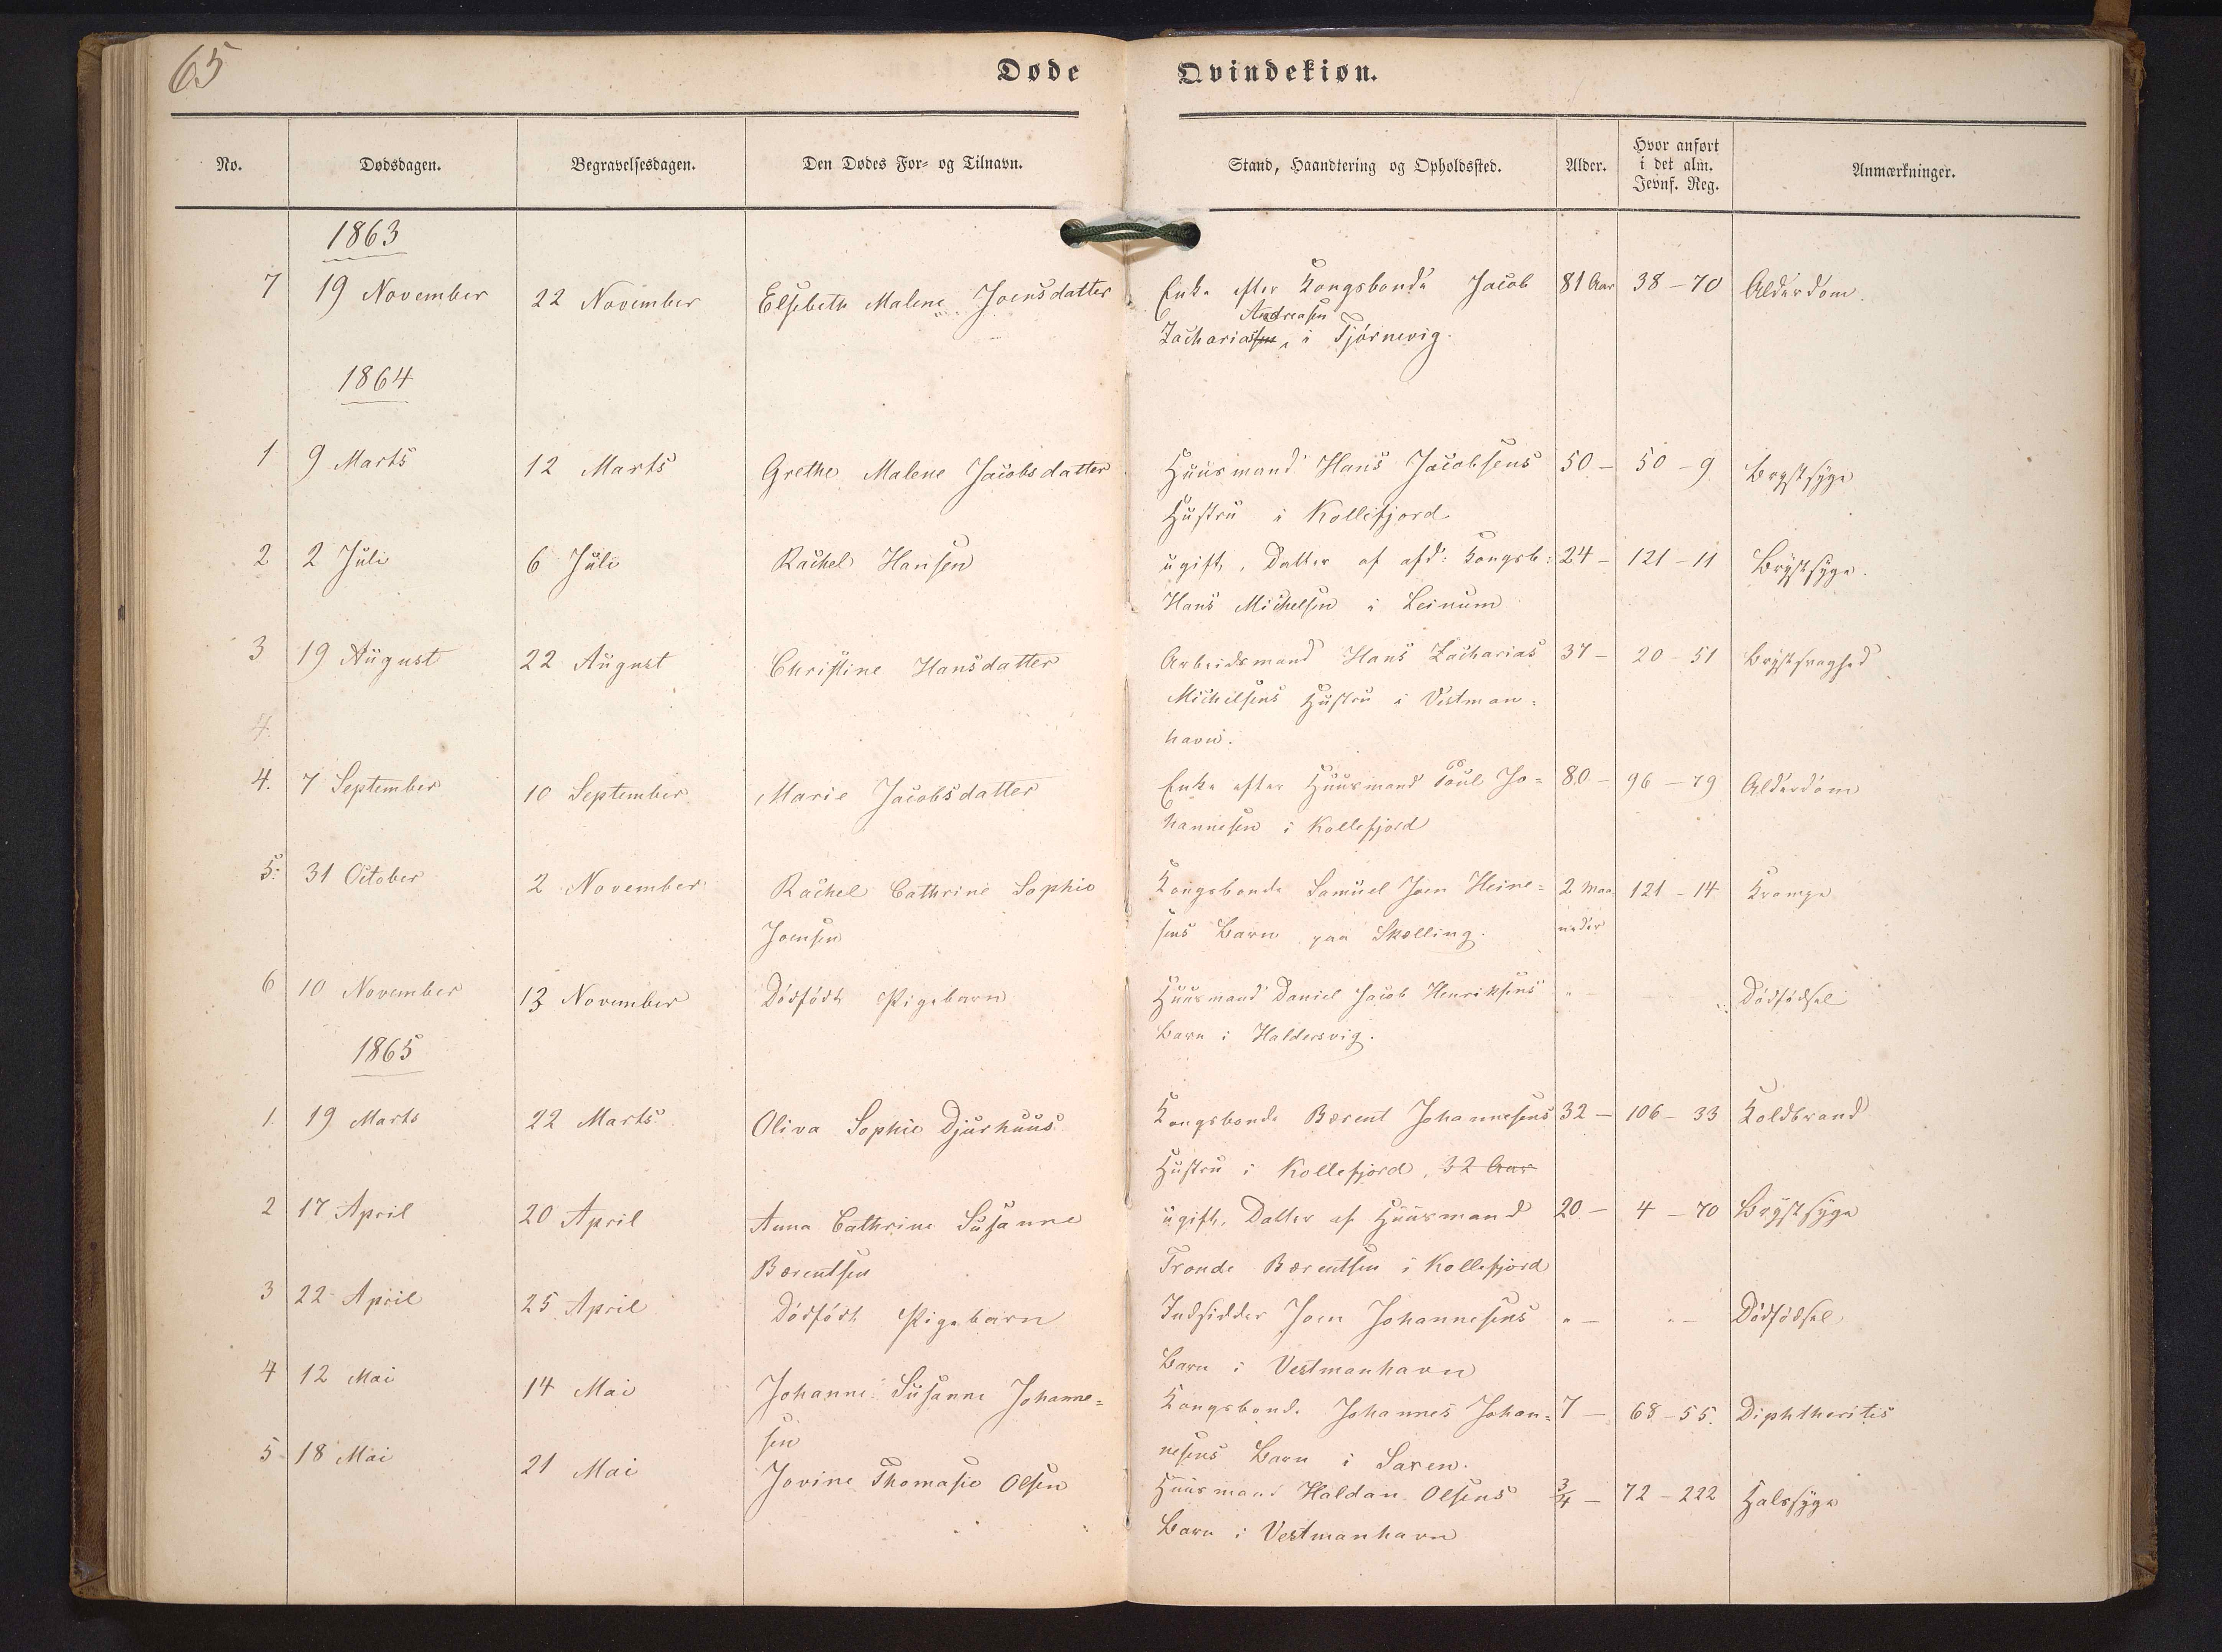 65
Døde Qvindekiøn.
No. Dødsdagen. Begravelsesdagen. Den Dødes For- og Tilnavn. Stand, Haandtering og Opholdssted. Alder. Hvor anført i det alm. Jevnf. Reg. Anmærkninger.
1863
7 19 November 22 November Elsebeth Malene Joensdatter Enke efter Kongsbonde Jacob 81 Aar 38-70 Alderdom.
Andreasen
Zachariassen, i Tjørnevig.
1864
1 9 Marts 12 Marts Grethe Malene Jacobsdatter Huusmand Hans Jacobsens 50 - 50-9. Brystsyge
Hustru i Kollefjord
2 2 Juli 6 Juli Rachel Hansen ugift, Datter af afd: Kongsb: 24 - 121-11 Brystsyge.
Hans Michelsen i Leinum
3 19 August 22 August Christine Hansdatter Arbeidsmand Hans Zacharias 37 - 20-51 Brystsvaghed
Michelsens Hustru i Vestman-
havn.
4.
4. 7 September 10 September Marie Jacobsdatter Enke efter Huusmand Poul Jo= 80 - 96-79 Alderdom
hannesen i Kollefjord
5. 31 October 2 November Rachel Cathrine Sophie Kongsbonde Samuel Joen Heine= 2 Maa 121-14 Krampe
Joensen sens Barn paa Skælling. neder
6 10 November 13 November Dødfødt Pigebarn Huusmand Daniel Jacob Henriksens " - Dødfødsel
Barn i Haldersvig.
1865
1. 19 Marts 22 Marts Oliva Sophie Djurhuus Kongsbonde Bærent Johannesens 32 - 106-33 Koldbrand
Hustru i Kollefjord, 32 Aar
2 17 April 20 April Anna Cathrine Susanne ugift, Datter af Huusmand 20 - 4-70 Brystsyge
Bærentsen Tronde Bærentsen i Kollefjord
3 22 April 25 April Dødfødt Pigebarn Indsidder Joen Johannesens " - " - Dødfødsel
Barn i Vestmanhavn
4 12 Mai 14 Mai Johanne Susanne Johanne= Kongsbonde Johannes Johan= 7 - 68-55. Diphtheritis
sen nesens Barn i Saxen.
5 18 Mai 21 Mai Jovine Thomasie Olsen Huusmand Haldan Olsens 3/4 - 72-222 Halssyge
Barn i Vestmanhavn